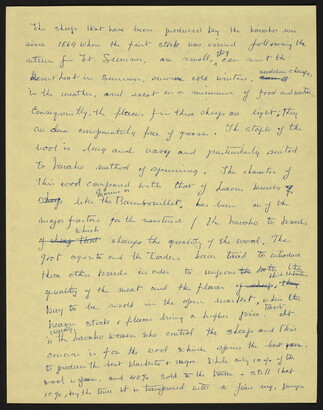 The sheep that have been produced by the Navaho
since 1869 when the first stock was issued following the
return from Ft. Sumner, are small, they can resist the
desert heat in summer, severe cold winters, sudden changes
in the weather, and exist on a minimum of food and water.
Consequently, the fleeces from these sheep are light; they
are also comparatively free of grease. The staple of the
wool is long and wavy and particularly suited
to Navaho method of spinning. The character of
this wool compared with that of
like the Rambouillet, has been one of the
major factors for the resistance of the Navaho to breeds
which change the quality of the wool. The
Govt agents and the traders have tried to introduce
these other breeds in order to improve the
quality of the meat and the fleece
to be sold in the open market, when the
heavier stocks & fleece bring a higher price. It
is the Navaho women who control the sheep and their
concern is for the wool which spins the best yarn,
to produce the best blankets & rugs. While only 60% of the
wool is and 40% sold to the trader - still that
60%, by the time it is transformed into a fine rug, brings